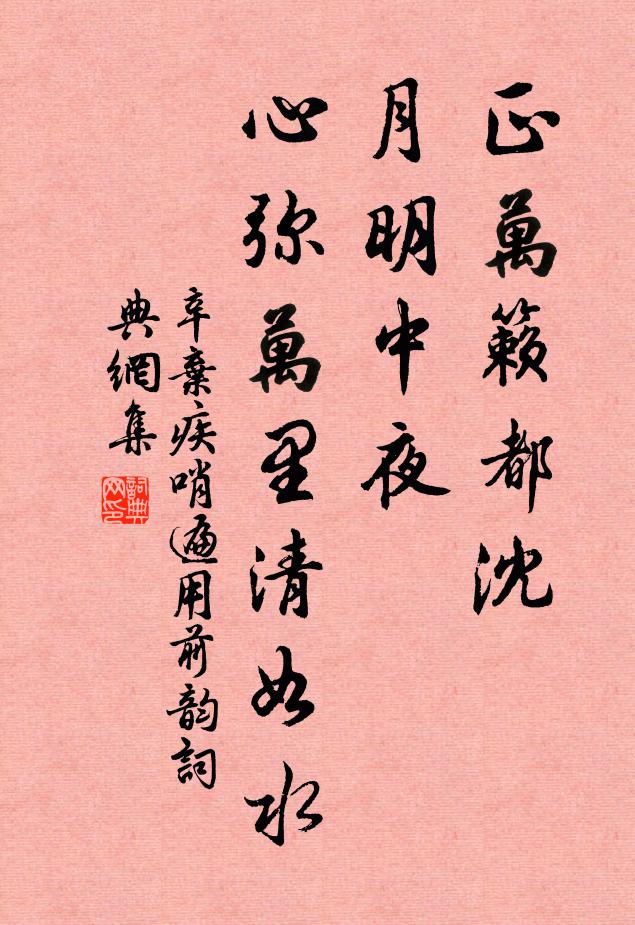 正萬籟都沈
月明中夜
心弥萬里清如水
辛棄疾哨遍用前韵詞
典網集
詞典网印